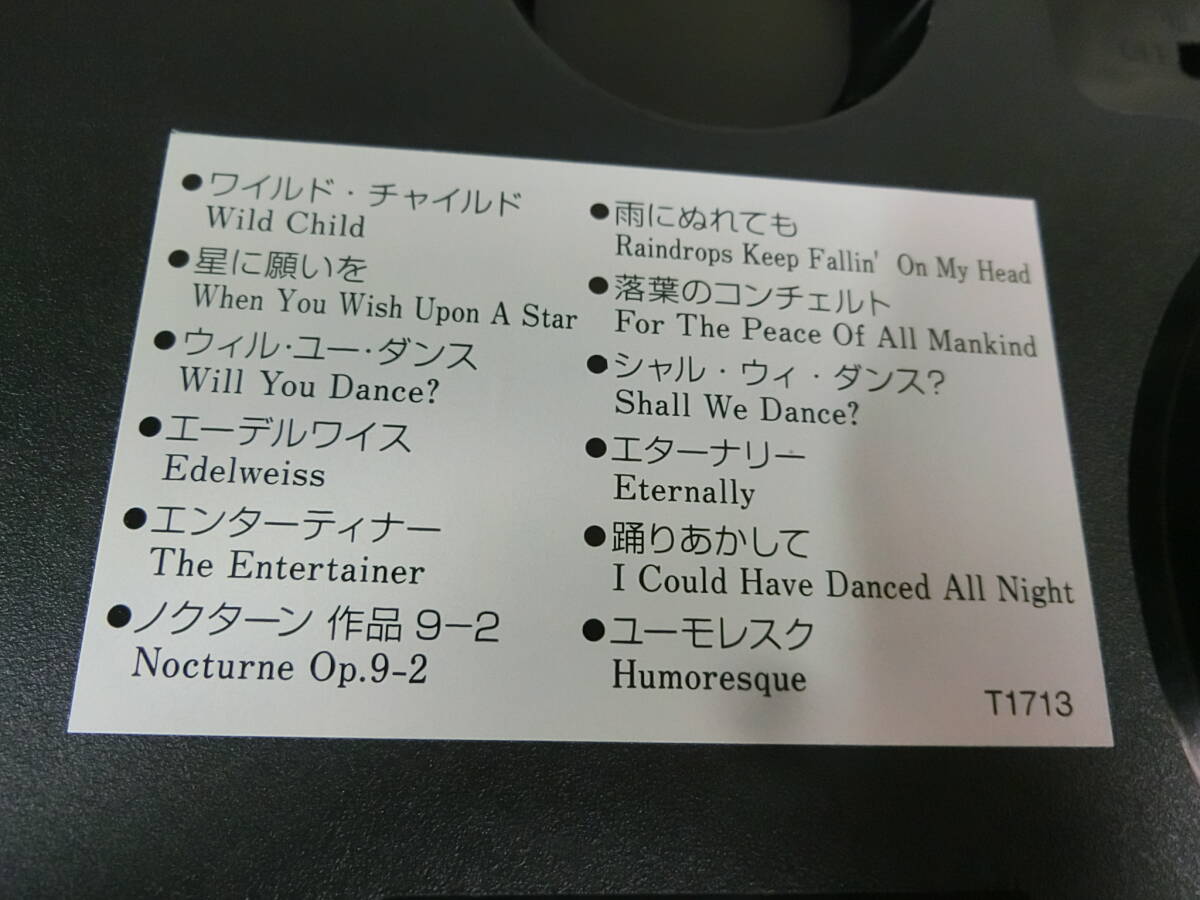 ●ワイルド・チャイルド
Wild Child
●星に願いを
When You Wish Upon A Star
●ウィル・ユー・ダンス
Will You Dance?
●エーデルワイス
Edelweiss
●エンターティナー
The Entertainer
●ノクターン 作品9−2
Nocturne Op.9-2
●雨にぬれても
Raindrops Keep Fallin' On My Head
●落葉のコンチェルト
For The Peace Of All Mankind
●シャル・ウィ・ダンス?
Shall We Dance?
●エターナリー
Eternally
●踊りあかして
I Could Have Danced All Night
●ユーモレスク
Humoresque
T1713